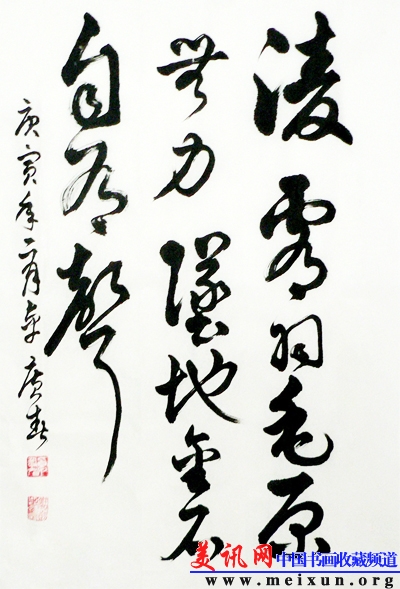 淩霄羽毛原
無力墜地金石
自有聲
庚寅年二月 廣春
美讯网 中国书画收藏频道
www.meixun.org